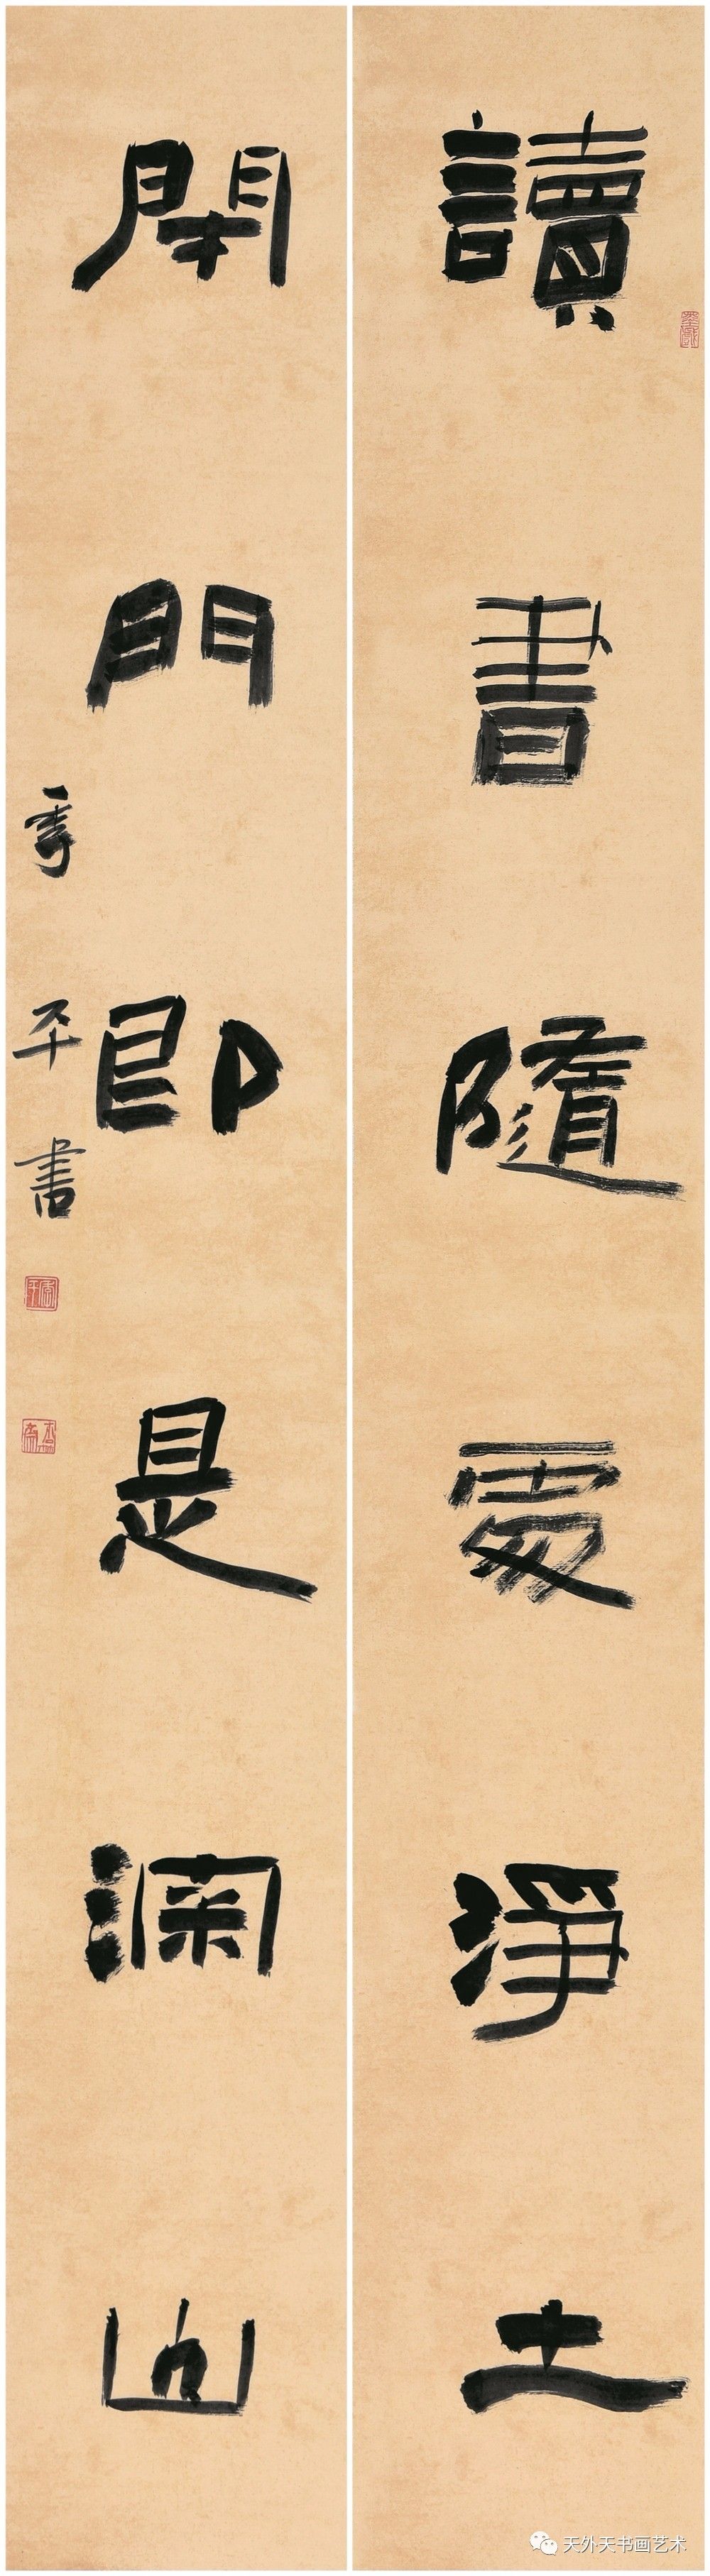 讀書隨處淨土
閉門即是深山
季平書
天外天书画艺术